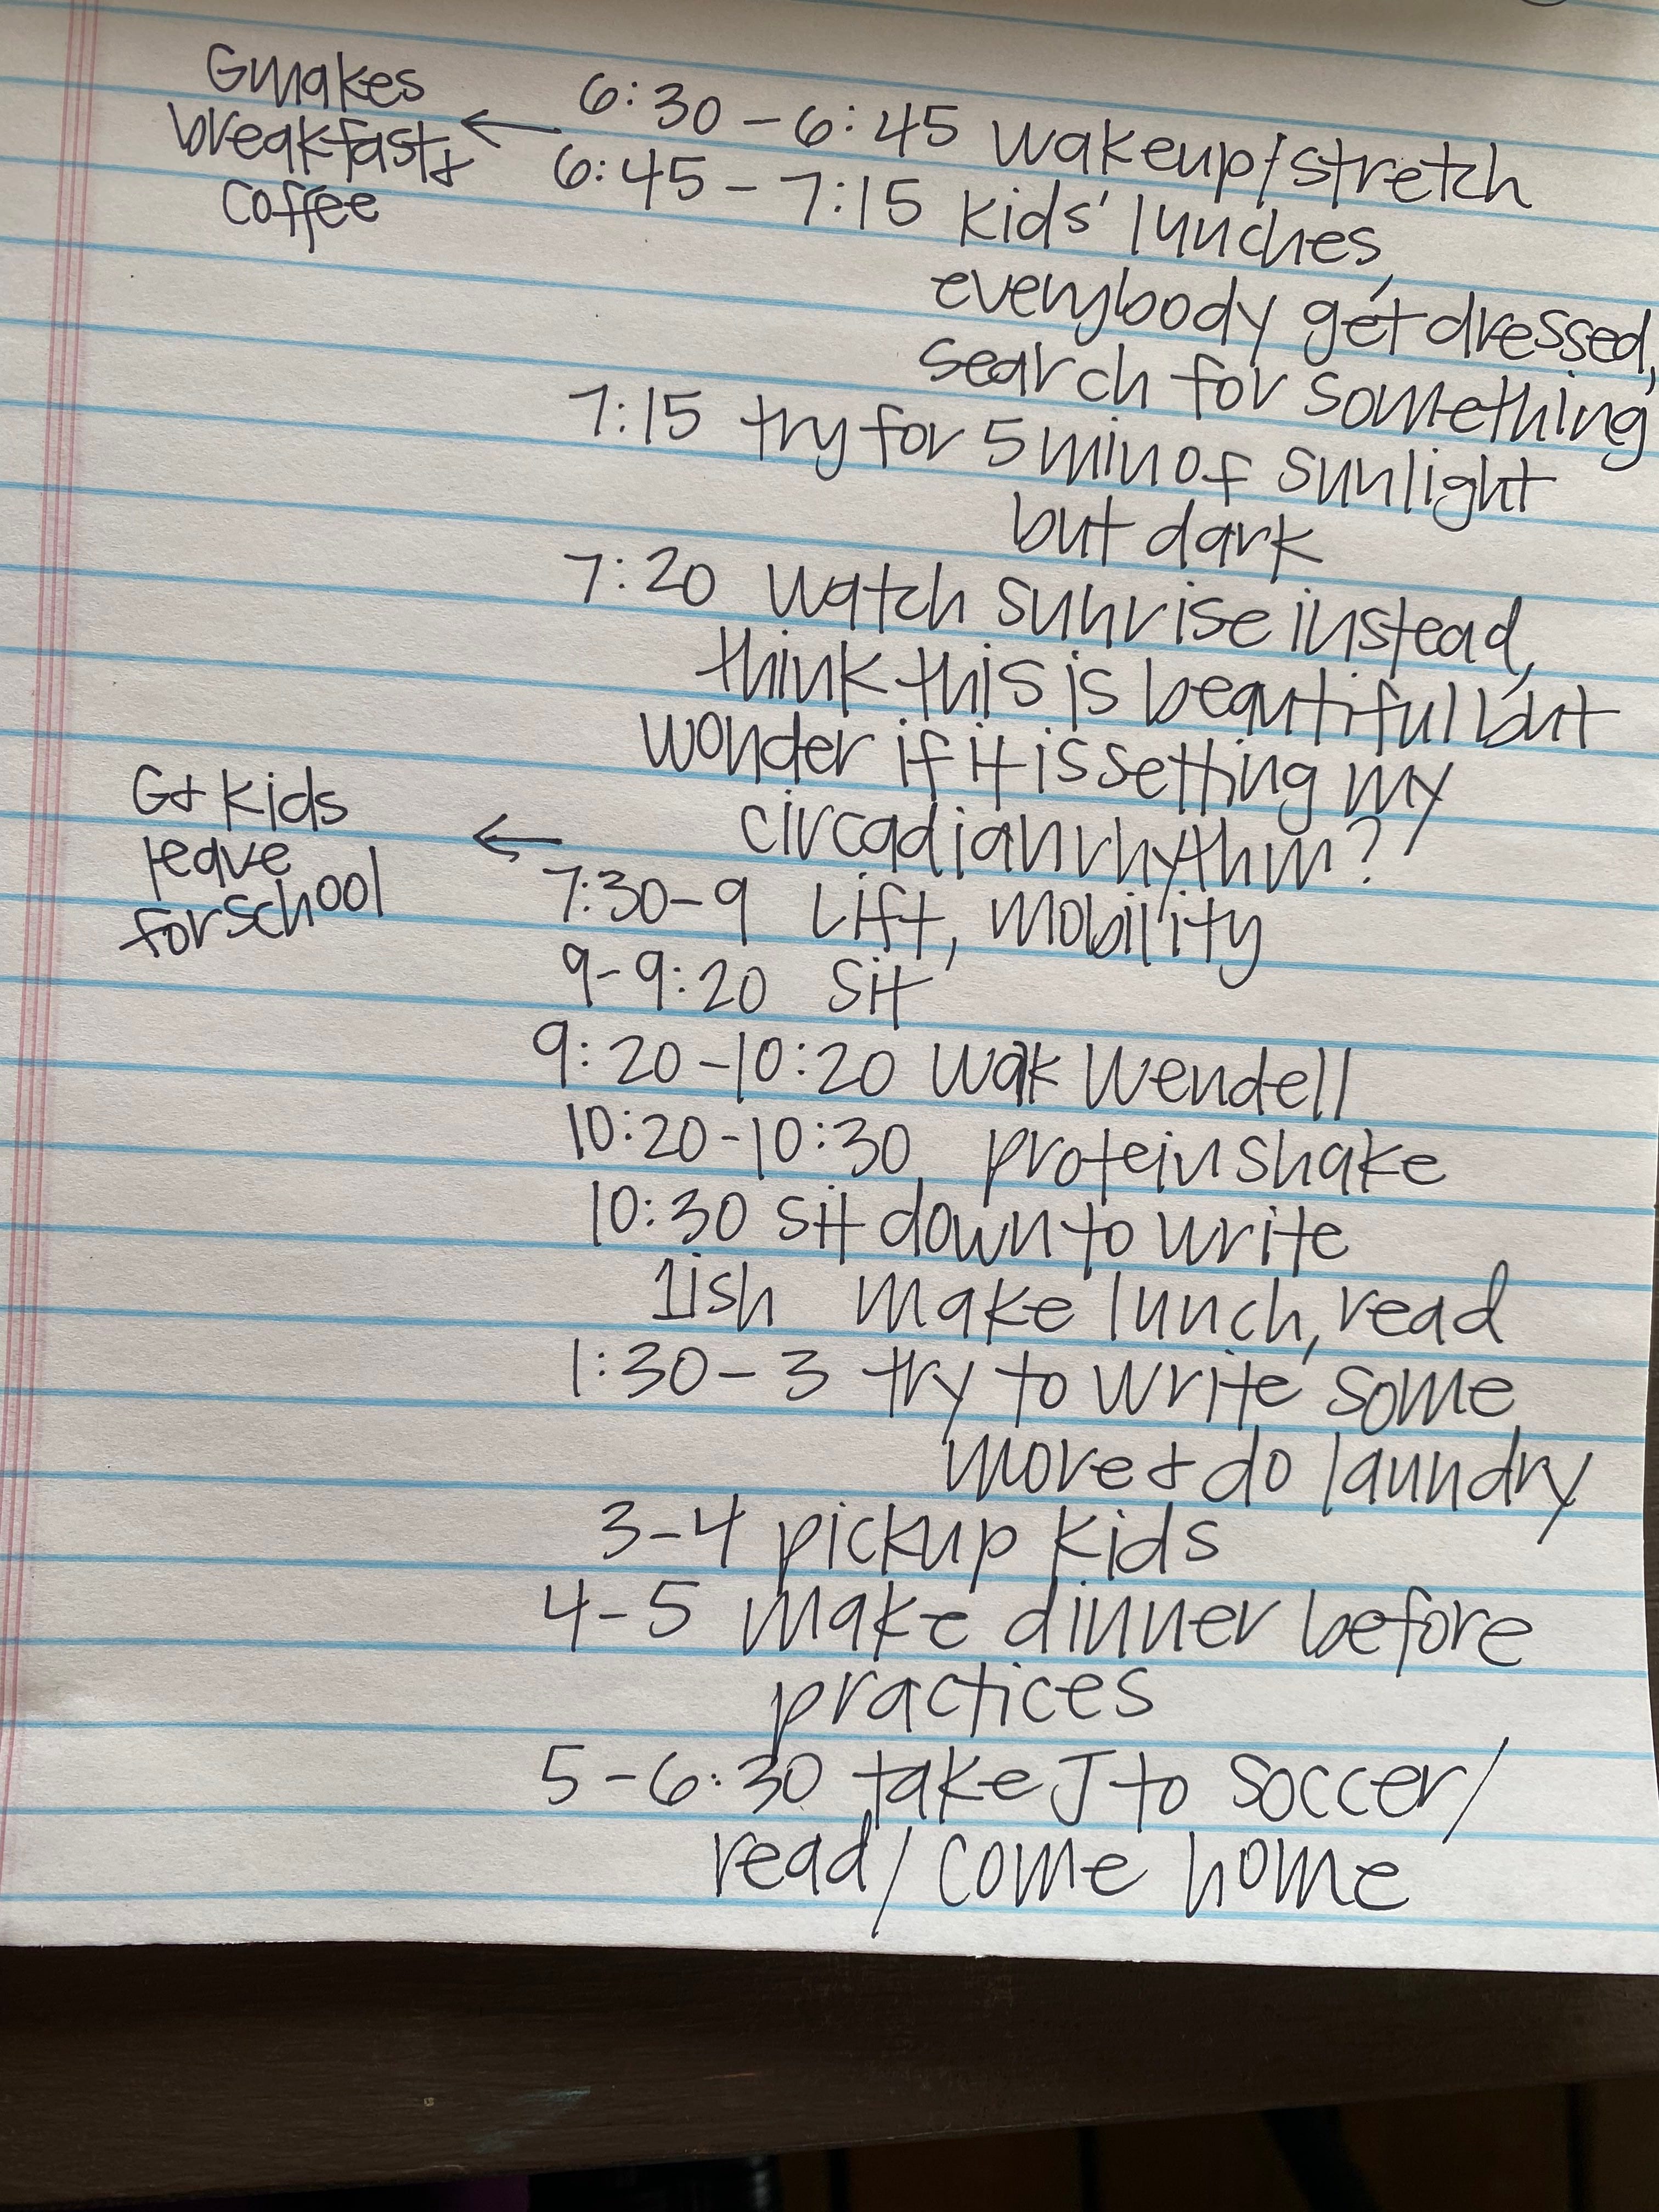 G makes
breakfast &
coffee
6:30 - 6:45 wakeup/stretch
6:45 - 7:15 kids' lunches,
everybody get dressed,
search for something
7:15 try for 5 min of sunlight
but dark
7:20 watch sunrise instead,
think this is beautiful but
wonder if it is setting my
circadian rhythm?
G & kids
leave
for school
7:30-9 Lift, mobility
9-9:20 Sit
9:20-10:20 Walk Wendell
10:20-10:30 protein shake
10:30 sit down to write
1ish make lunch, read
1:30-3 try to write some
more & do laundry
3-4 pickup kids
4-5 make dinner before
practices
5-6:30 take J to soccer/
read/come home